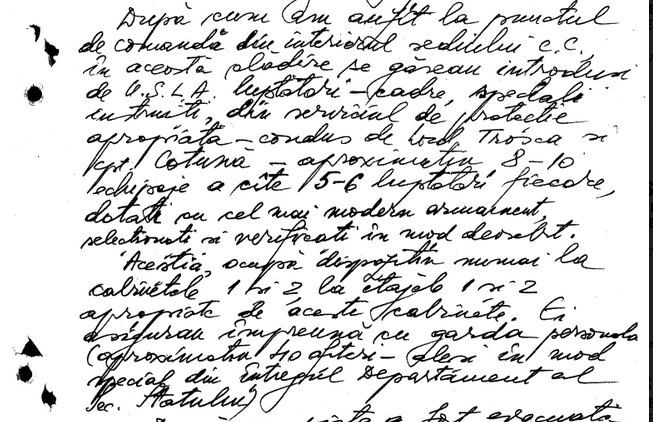 După cum am auzit la punctul
de comandă din interiorul sediului C.C.,
în această clădire se găseau introduși
de U.S.L.A. luptători - cadre, special
instruiți, din serviciul de protecție
apropiată - condus de Trosca și
cpt. Cotună - aproximativ 8-10
echipaje a cîte 5-6 luptători fiecare,
dotați cu cel mai modern armament,
selecționați și verificați în mod deosebit.
Aceștia, ocupă dispozitiv numai la
cabinetele 1 și 2, la etajele 1 și 2
apropiate de aceste cabinete. Ei
asigurau împreună cu garda personală
(aproximativ 40 ofițeri - aleși în mod
special din întregul Departament al
Sec. Statului)
a fost evacuată